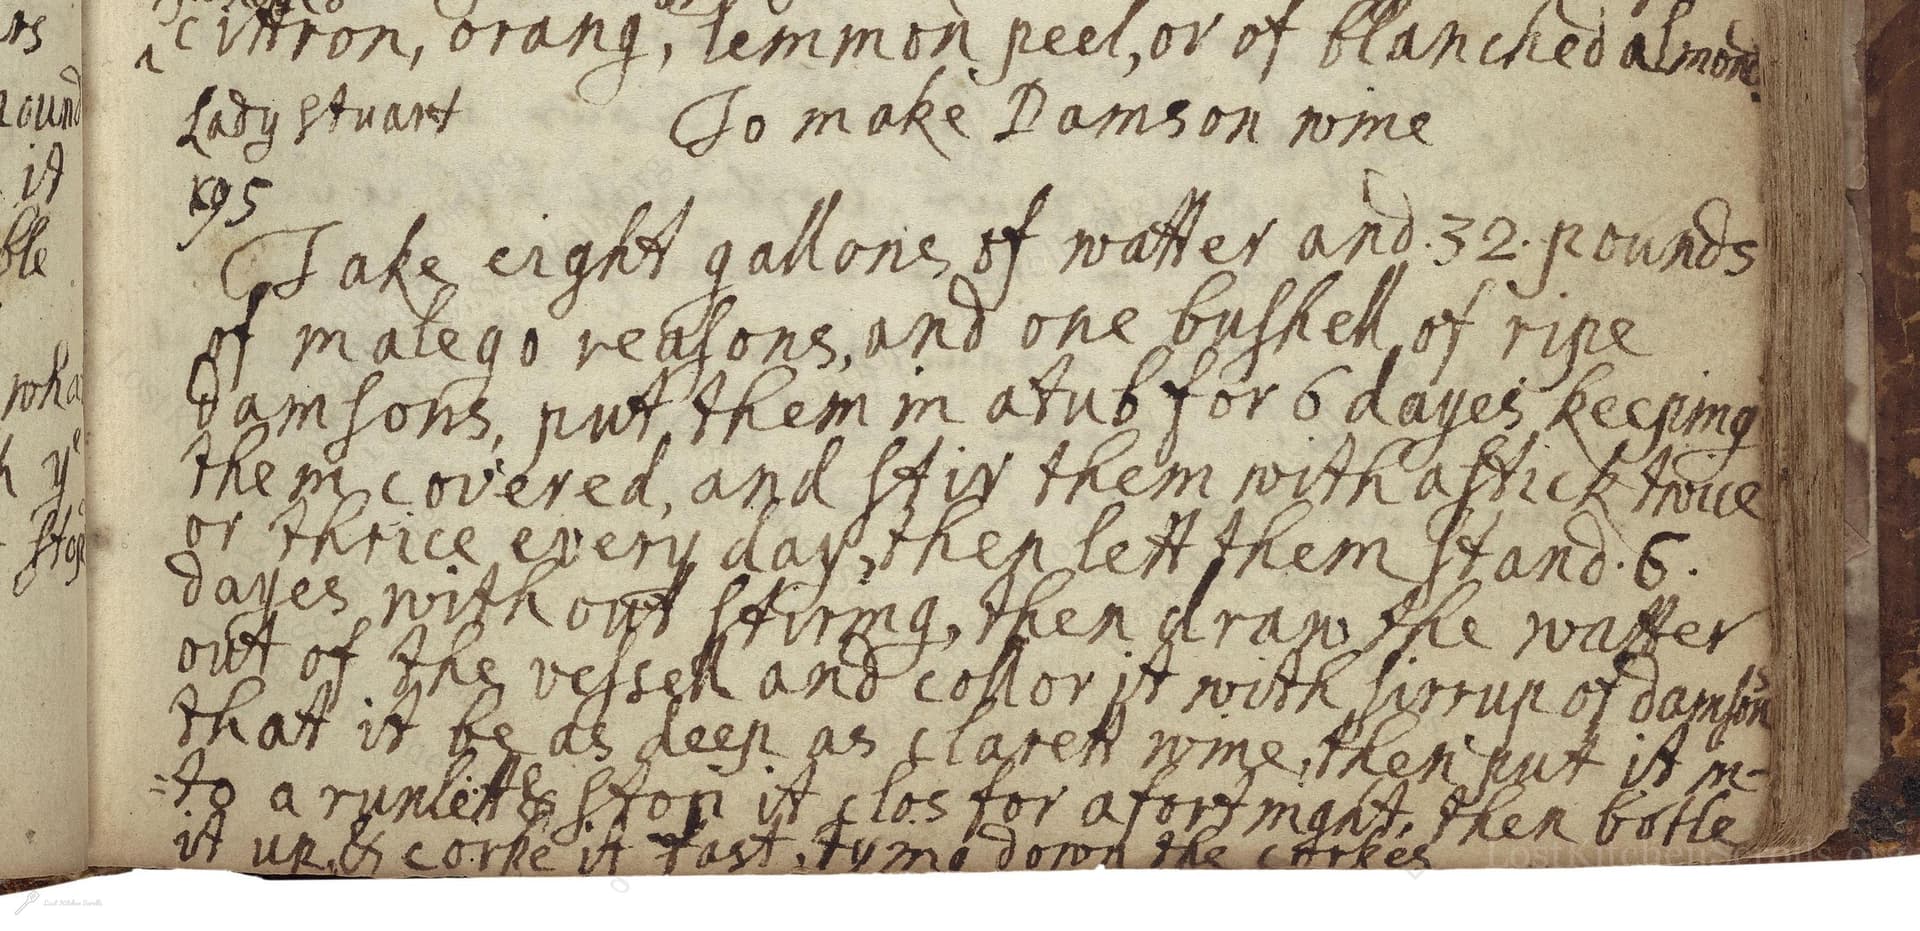 rs
cittron, orang, lemmon peel, or of blanched almon
ound
Lady Stuart To make Damson wine
it
195
ble
Take eight gallons of watter and .32. pounds
of malego reasons, and one bushell of ripe
wha
damsons, put them in a tub for 6 dayes keeping
h ye
them covered, and stir them with a stick twice
stop
or thrice every day, then lett them stand .6.
dayes with out stiring, then draw the watter
out of the vessell and collor it with sirrup of damsons
that it be as deep as clarett wine, then put it in-
=to a runlett & stop it clos for a fortnight, then botle
it up, & corke it fast, tying down the corkes
LostKitchenScrolls
Lost Kitchen Scrolls